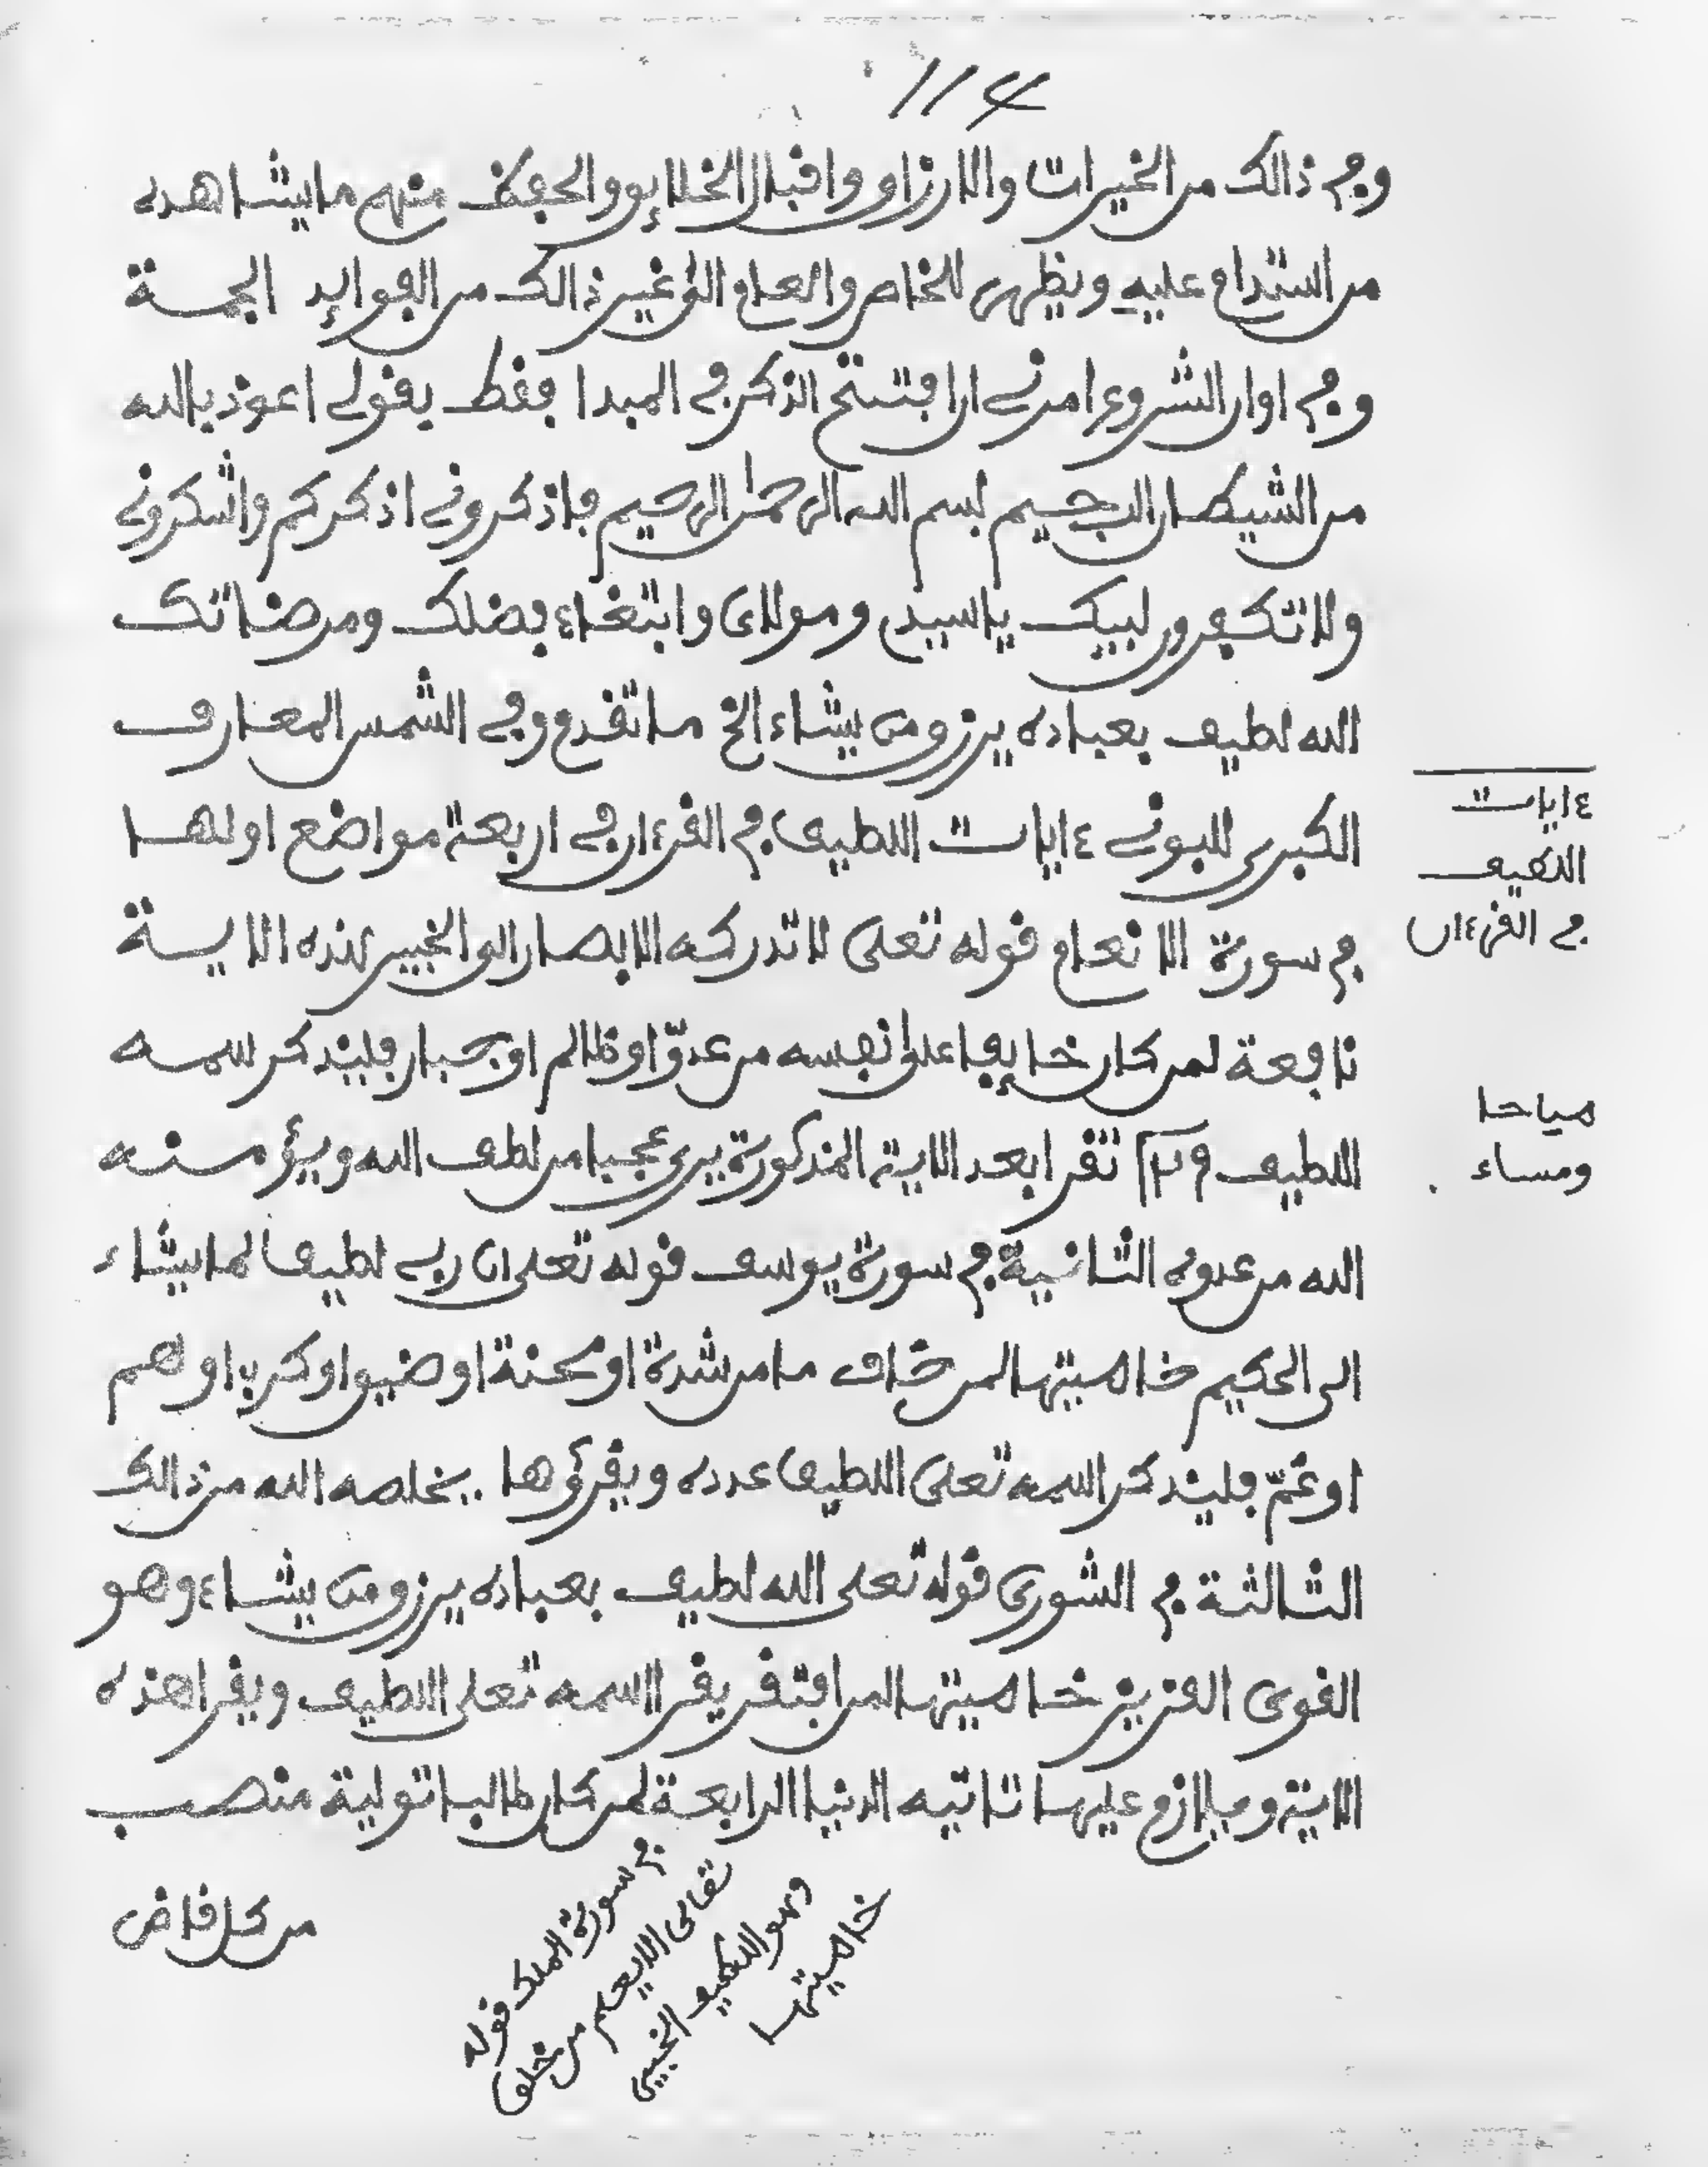 114
وفي ذالك من الخيرات والارزاق واقبال الخلايق والحفظ منهم ما يشاهده
من استدام عليه ويظهر للخاص والعام الى غير ذالك من الفوايد الجمة
وفي اوان الشروع امرني ان افتتح الذكر في المبدا فقط بقولي اعوذ بالله
من الشيطان الرجيم بسم الله الرحمن الرحيم فاذكروني اذكركم واشكروني
ولا تكفرون لبيك يا سيدي ومولاي وابتغاء فضلك ومرضاتك
الله لطيف بعباده يرزق من يشاء الخ ما تقدم وفي الشمس المعارف
الكبرى للبوني ٤ ايات اللطيف في القرءان في اربعة مواضع اولها
في سورة الانعام قوله تعلى لا تدركه الابصار الى الخبير هذه الاية
نافعة لمن كان خايفا على نفسه من عدوّ او ظالم او جبار فليذكر اسمه
اللطيف ١٢٩ تقرا بعد الاية المذكورة يرى عجبا من لطف الله ويؤمنه
الله من عدوه الثانية في سورة يوسف قوله تعلى ان ربي لطيف لما يشاء
الى الحكيم خاصيتها لمن خاف ما من شدة او محنة او ضيق او كرب او هم
او غمّ فليذكر اسمه تعلى اللطيف عدده ويقرؤها يخلصه الله من ذالك
الثالثة في الشورى قوله تعلى الله لطيف بعباده يرزق من يشاء وهو
القوي العزيز خاصيتها لمن افتقر يقرا اسمه تعلى اللطيف ويقرا هذه
الاية ويلازم عليها تاتيه الدنيا الرابعة لمن كان طالبا تولية منصب
في سورة الملك قوله
تعالى الا يعلم من خلق
وهو اللطيف الخبير
خاصيتها
من كل قاض
٤ ايات
اللطيف
في القرءان
صباحا
ومساء